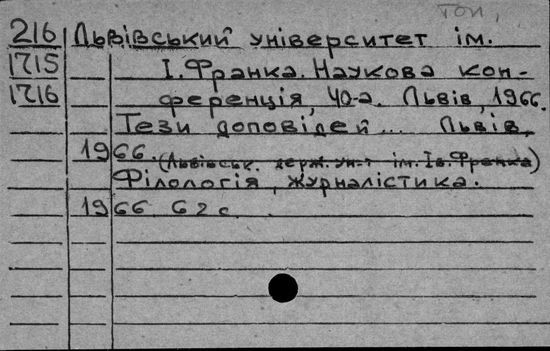 ТОИ,
216 Львівський університет ім.
1715 І. Франка. Наукова кон-
1716 ференція, 40-а. Львів, 1966.
Тези доповідей... Львів,
1966. (Львівськ. держ. ун-т ім. Ів. Франка)
Філологія, журналістика.
1966. 62 с.